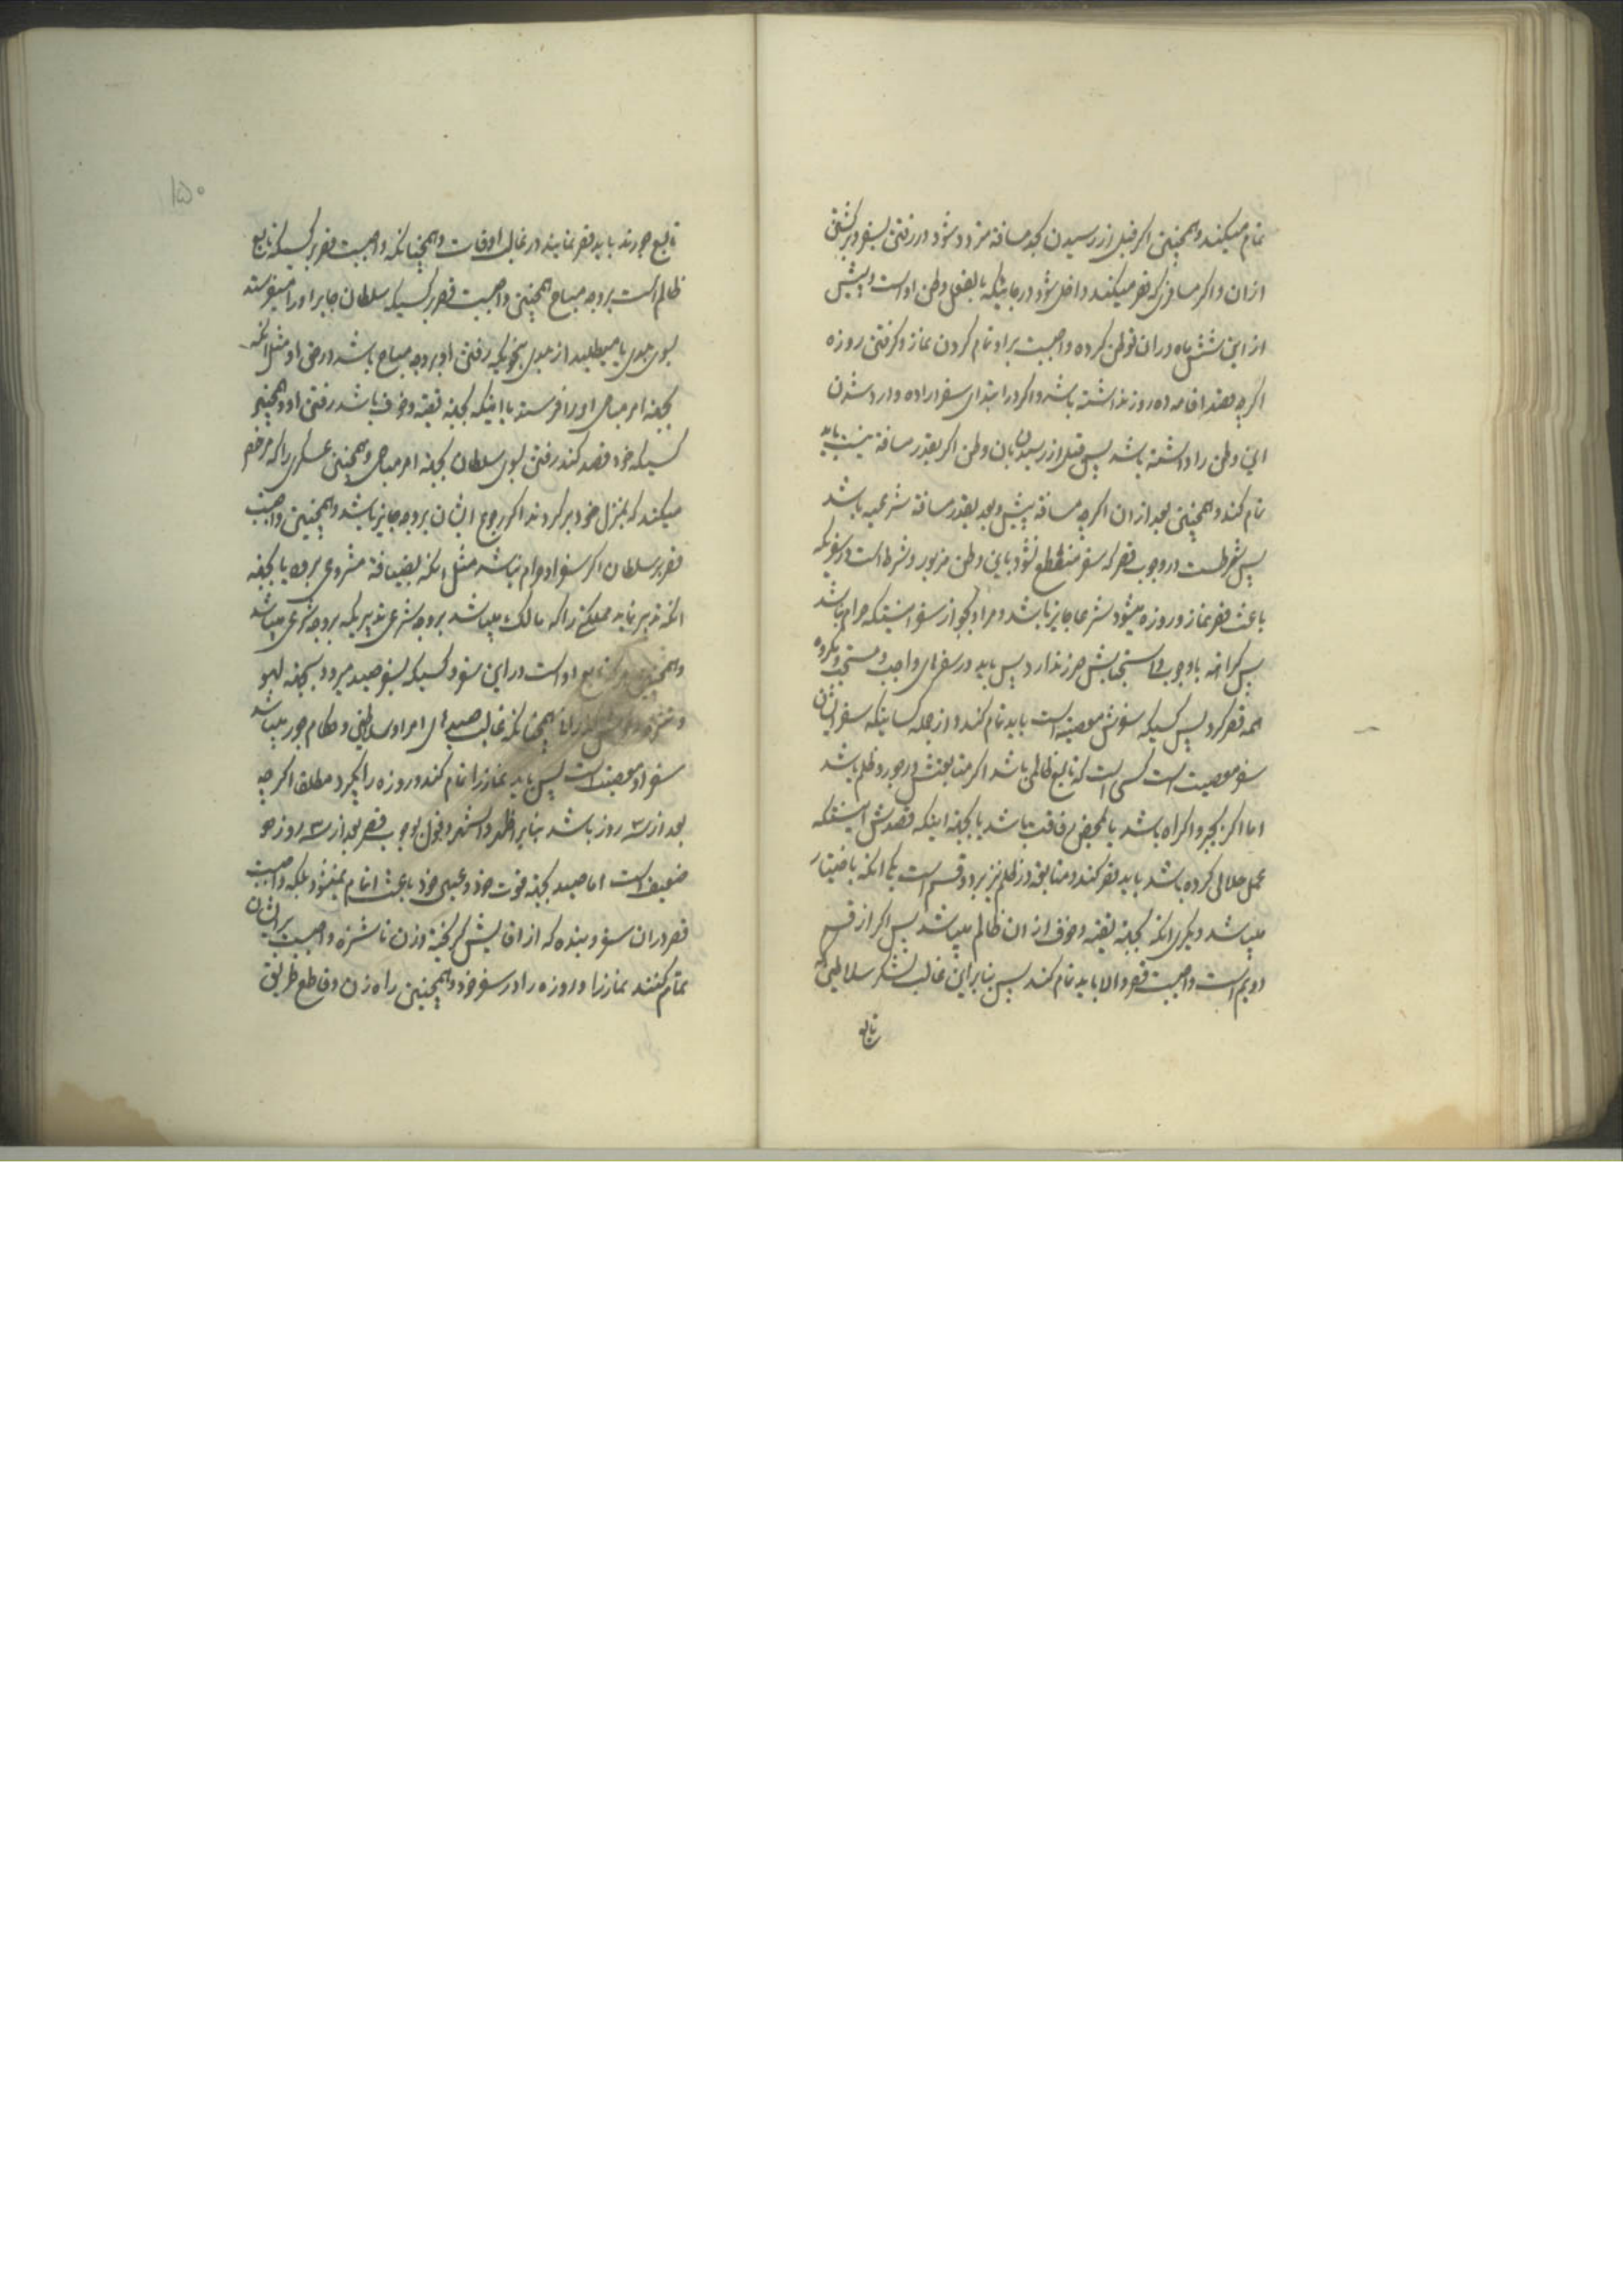 تمام میکند و همچنین اکر قبل از رسیدن بحد مسافة متردد شود در رفتن بسفر و برکشتن
از ان و اکر مسافری که قصر میکند داخل شود در جائیکه بالفعل وطن او است و پیش
از این شش ماه در ان توطن کرده واجبست بر او تمام کردن نماز و کرفتن روزه
اکرچه قصد اقامه ده روز نداشته باشد و اکر در ابتدای سفر اراده وارد شدن
این وطن را داشته باشد پس قبل از رسیدن بان وطن اکر بقدر مسافة نیست باید
تمام کند و همچنین بعد از ان اکرچه مسافة پیش و بعد بقدر مسافة شرعیه باشد
پس شرطست در وجوب قصر که سفر منقطع نشود باین وطن مزبور و شرط است در سفریکه
باعث قصر نماز و روزه میشود شرعا جایز باشد و مراد بجواز سفر اینستکه حرام نباشد
پس کراهة یا وجوب یا استحبابش ضرر ندارد پس باید در سفرهای واجب و مستحب و مکروه
همه قصر کرد پس کسیکه سفرش معصیة است باید تمام کند و از جمله کسانیکه سفر ایشان
سفر معصیت است کسی است که تابع ظالمی باشد اکر متابعتش در جور و ظلم باشد
اما اکر بجبر و اکراه باشد یا بمحض رفاقت باشد یا بجهة اینکه قصدش اینستکه
عمل حلالی کرده باشد باید قصر کند و متابعة در ظلم نیز بر دو قسم است یکی انکه باختیار
میباشد دیکری انکه بجهة تقیه و خوف از ان ظالم میباشد پس اکر از قسم
دویم است واجبست قصر و الا باید تمام کند پس بنابراین غالب لشکر سلاطین که
تابع
۱۵۰
تابع جورند باید قصر نمایند در غالب اوقات و همچنانکه واجبست قصر بر کسیکه تابع
ظالم است بر وجه مباح همچنین واجبست قصر بر کسیکه سلطان جایر او را میفرستد
بسوی جای یا میطلبد از جای بنحویکه رفتن او بر وجه مباح باشد در حق او مثل انکه
بجهة امر مباحی او را فرستد یا اینکه بجهة تقیه و خوف باشد رفتن او و همچنین
کسیکه خود قصد کند رفتن بسوی سلطان بجهة امر مباحی و همچنین عسکری را که مرخص
میکنند که بمنزل خود برکردند اکر رجوع ایشان بر وجه جایز باشد و همچنین واجبست
قصر بر سلطان اکر سفر او حرام نباشد مثل انکه بضیافة مشروعی برود یا بجهة
انکه تدبیر نماید مملکتی را که مالک میباشد بر وجه شرعی تدبیریکه بر وجه شرعی میباشد
و همچنین هر که تابع او است در این سفر و کسیکه بسفر صید میرود بجهة لهو
همچنانکه غالب صیدهای امرا و سلاطین و حکام جور میباشد
سفر او معصیة است پس باید نماز را تمام کند و روزه را بکیرد مطلقا اکرچه
بعد از سه روز باشد بنابر اظهر و اشهر و قول بوجوب قصر بعد از سه روز
ضعیف است اما صید بجهة قوت خود و عیال خود باعث اتمام نمیشود بلکه واجبست
قصر در ان سفر و بنده که از اقایش کریخته و زن ناشزه واجبست بر ایشان
تمام کنند نماز را و روزه را در سفر خود و همچنین راه زن و قاطع طریق